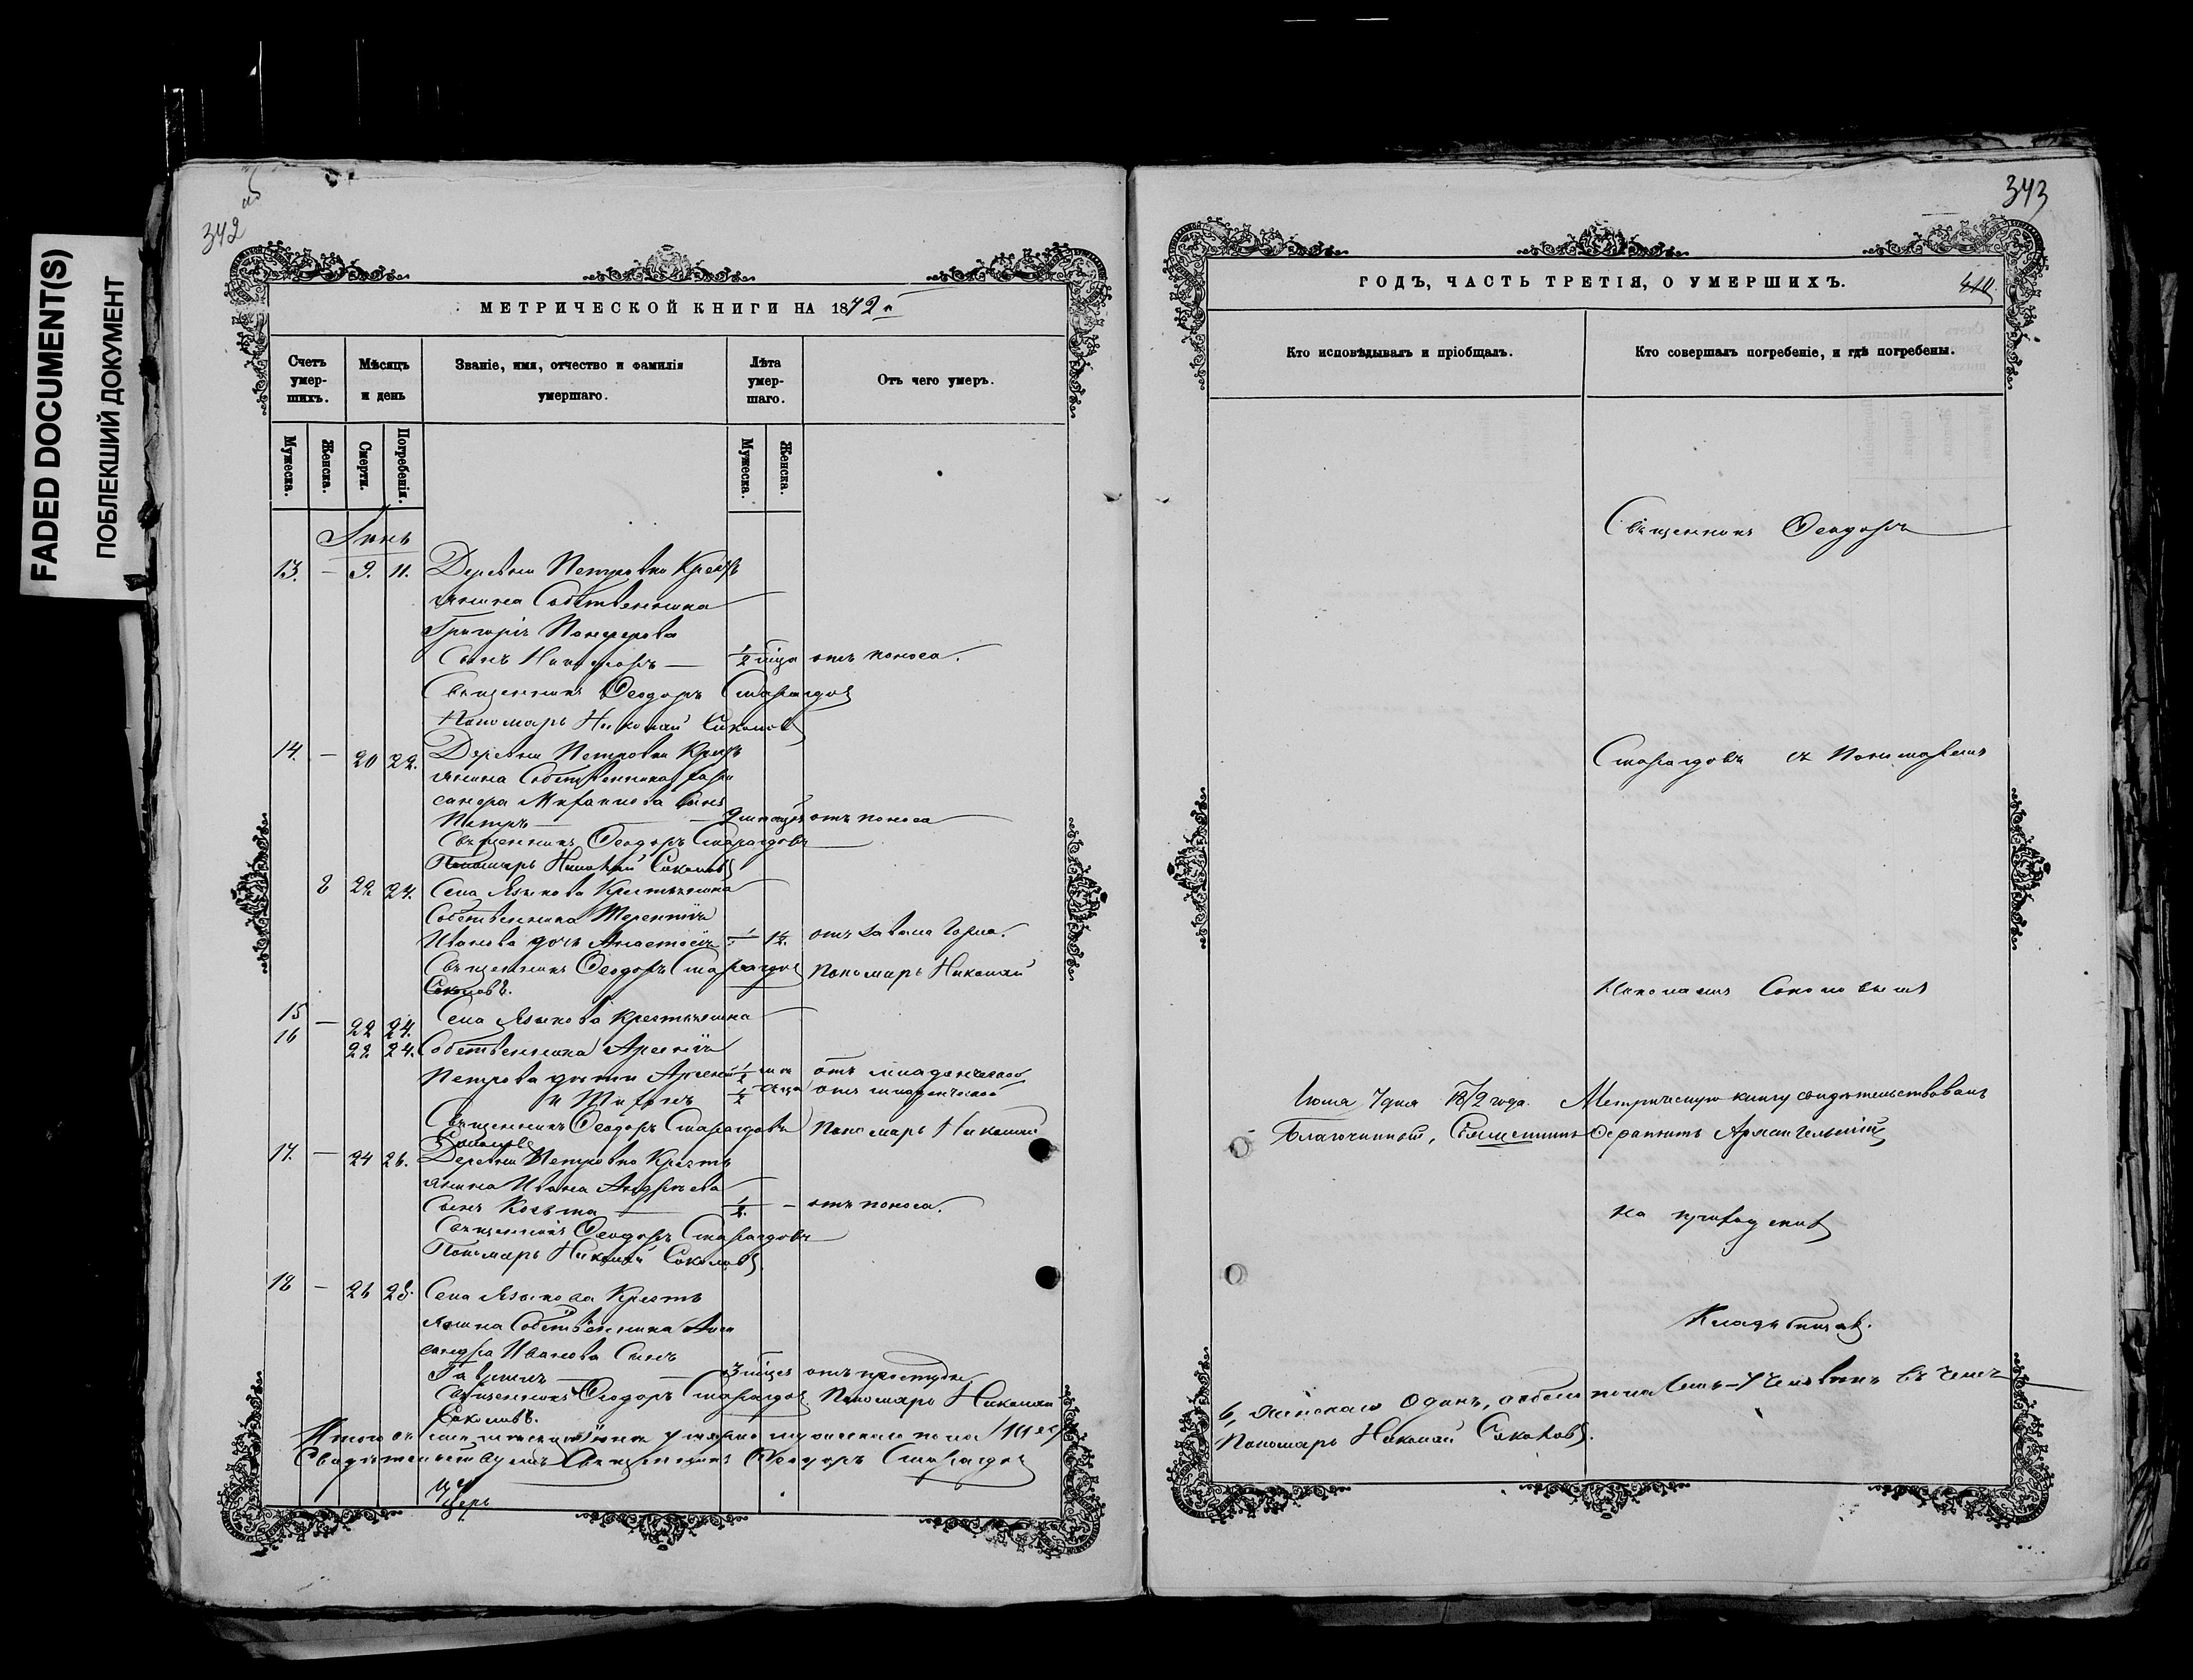 FADED DOCUMENT(S)
ПОБЛЕКШИЙ ДОКУМЕНТ
342
МЕТРИЧЕСКОЙ КНИГИ НА 1872й
Счетъ умер-шихъ.
Мѣсяцъ и день
Званіе, имя, отчество и фамилія умершаго.
Лѣта умер-шаго.
Отъ чего умеръ.
Мужеска.
Женска.
Смерти.
Погребенія.
Мужеска.
Женска.
Іюнь
13. — 9. 11. Деревни Петровки Кресть
янина Собственника
Григорія
Сынъ Никифоръ — 1/2 отъ поноса.
Священникъ Ѳеодоръ Смарагдовъ
Пономарь Николай Соколовъ
14. — 20 22. Деревни Петровки Кресть
янина Собственника
сынъ
Петръ — отъ поноса
Священникъ Ѳеодоръ Смарагдовъ
Пономарь Николай Соколовъ
8 22 24. Села Языкова Крестьянина
Собственника Терентія
Иванова дочь Анастасія — отъ горла.
Священникъ Ѳеодоръ Смарагдовъ Пономарь Николай
Соколовъ.
15 — 22 24. Села Языкова Крестьянина
16 22 24. Собственника Арсенія
Петрова дѣти Арсеній 1/2 отъ младенческой
и 1/2 отъ младенческой
Священникъ Ѳеодоръ Смарагдовъ Пономарь Николай
Соколовъ
17. — 24 26. Деревни Петровки Кресть
янина Ивана Андреева
Сынъ Косьма 1/2. — отъ поноса.
Священникъ Ѳеодоръ Смарагдовъ
Пономарь Николай Соколовъ.
18 — 26 28. Села Языкова Кресть
янина Собственника Алек
сандра Иванова Сынъ
Гавріилъ — 3 отъ простуды
Священникъ Ѳеодоръ Смарагдовъ Пономарь Николай
Соколовъ.
Итого въ Іюнѣ умерло мужеска пола
Свидѣтельствуемъ Священникъ Ѳеодоръ Смарагдовъ
343
ГОДЪ, ЧАСТЬ ТРЕТІЯ, О УМЕРШИХЪ.
Кто исповѣдывалъ и пріобщалъ.
Кто совершалъ погребеніе, и гдѣ погребены.
Священникъ Ѳеодоръ
Смарагдовъ съ Пономаремъ
Николаемъ Соколовымъ
Іюля 7 дня 1872 года. Метрическую книгу свидѣтельствовалъ
Благочинный, Священникъ Архангельскій
на приходскомъ
Кладбищѣ.
6, женскаго одинъ, обоего пола семь — 7 человѣкъ въ чемъ
Пономарь Николай Соколовъ.